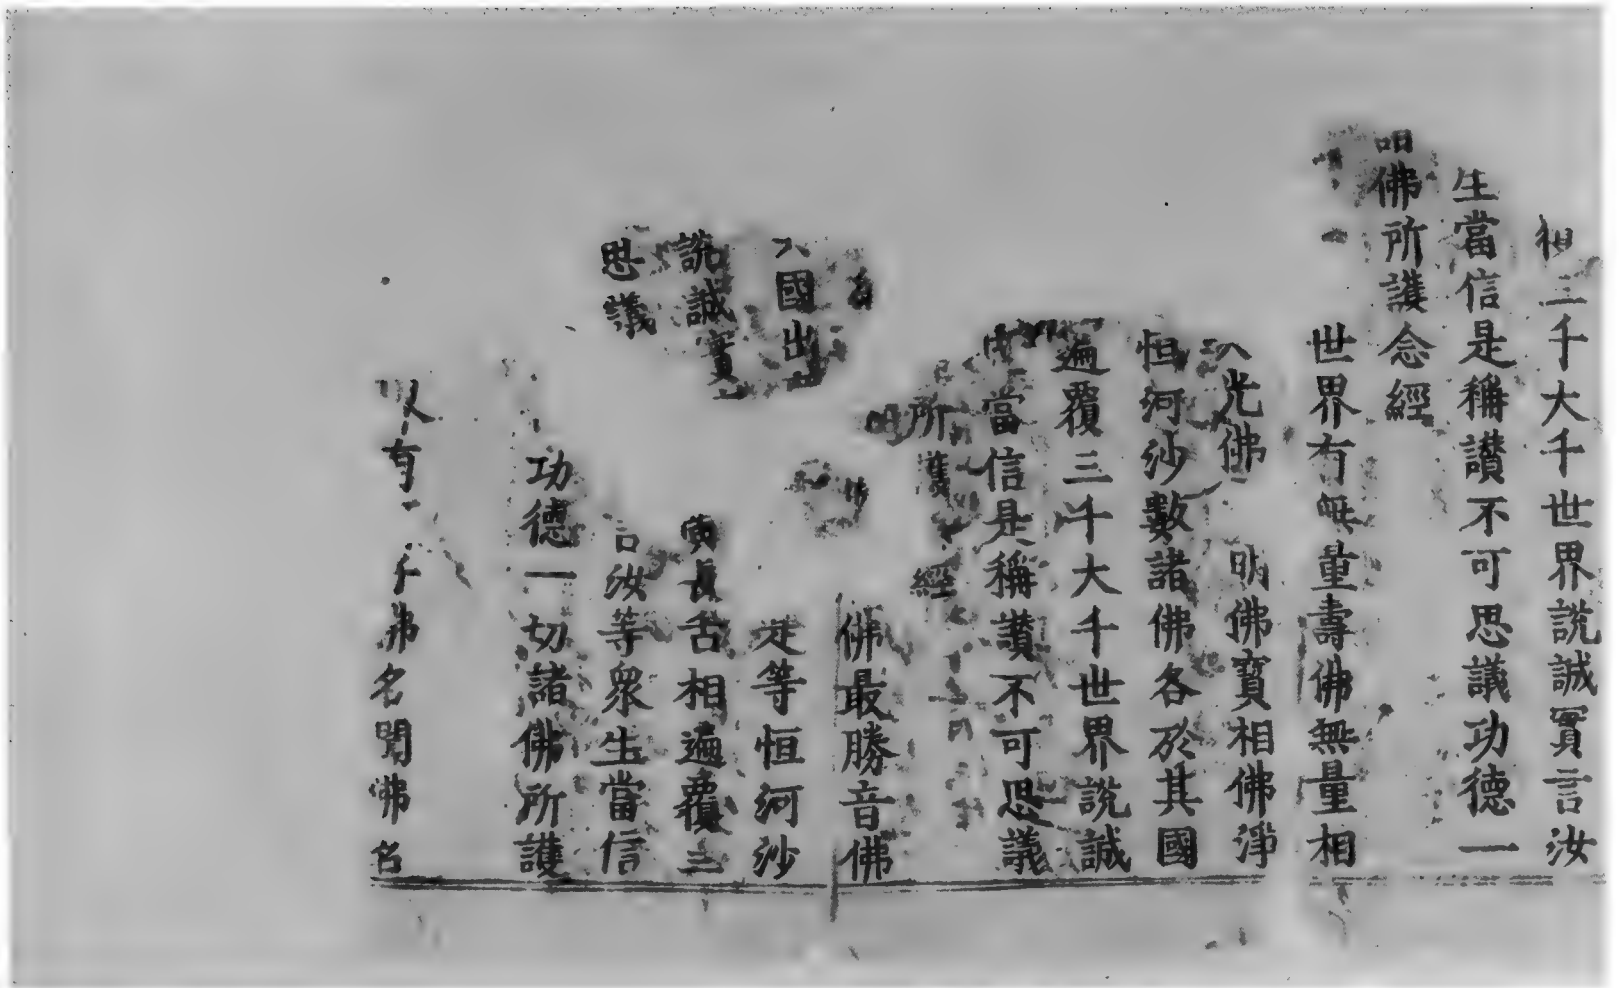 相三千大千世界說誠實言汝
生當信是稱讚不可思議功德一
佛所護念經
世界有無量壽佛無量相
光佛 明佛寶相佛淨
恒河沙數諸佛各於其國
遍覆三千大千世界說誠
當信是稱讚不可思議
所護 經
佛最勝音佛
國出 是等恒河沙
說誠實 廣長舌相遍覆三
思議 言汝等眾生當信
功德一切諸佛所護
人有 弗名聞佛名